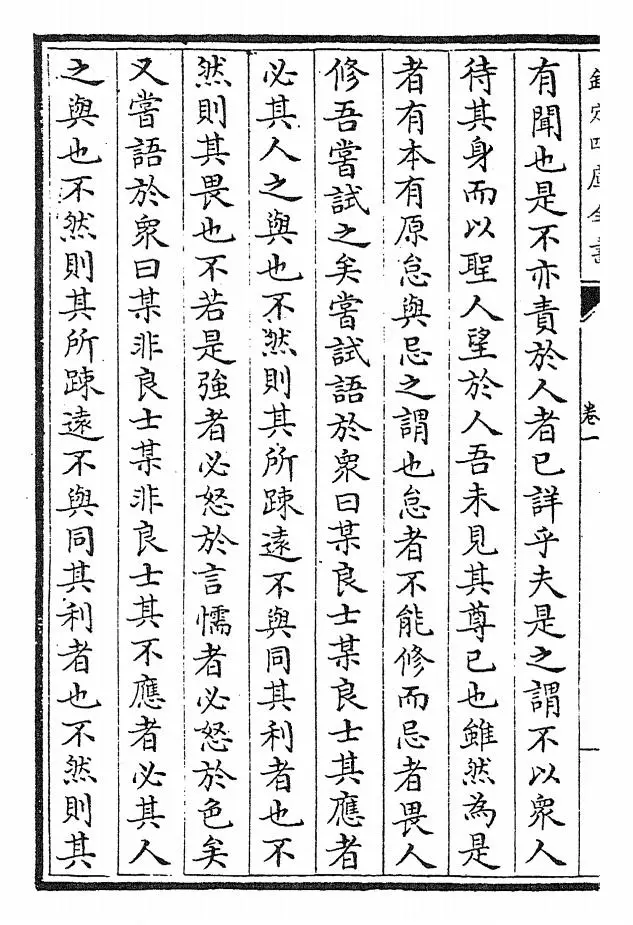 欽定四庫全書
卷一
有聞也是不亦責於人者已詳乎夫是之謂不以衆人
待其身而以聖人望於人吾未見其尊已也雖然為是
者有本有原怠與忌之謂也怠者不能修而忌者畏人
修吾嘗試之矣嘗試語於衆曰某良士某良士其應者
必其人之與也不然則其所踈遠不與同其利者也不
然則其畏也不若是強者必怒於言懦者必怒於色矣
又嘗語於衆曰某非良士某非良士其不應者必其人
之與也不然則其所踈遠不與同其利者也不然則其